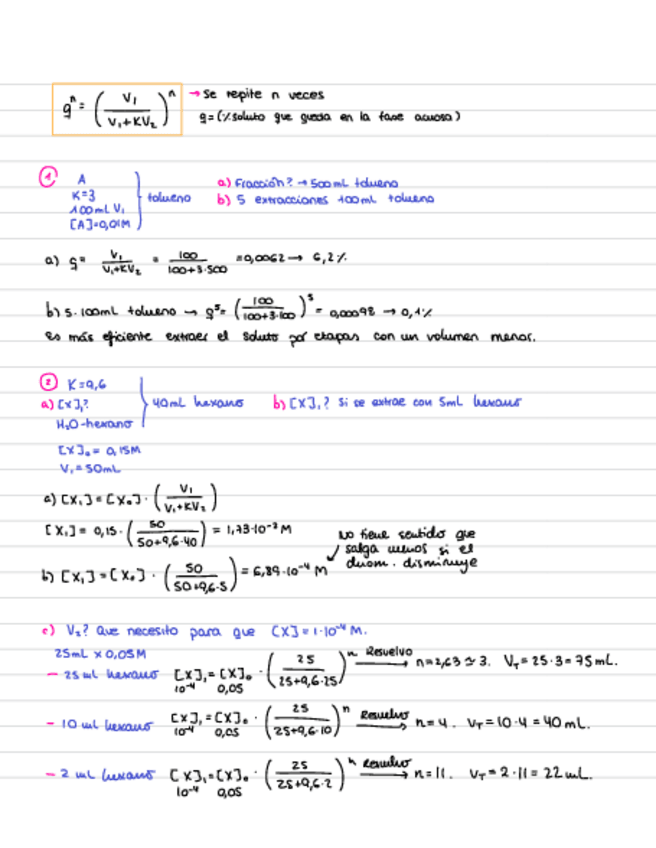 qⁿ = (V₁ / V₁+KV₂)ⁿ → Se repite n veces
q = (% soluto que queda en la fase acuosa)
① A
K=3
100mL V₁
[A]=0,01M
tolueno
a) Fracción? → 500mL tolueno
b) 5 extracciones 100mL tolueno
a) q = V₁ / V₁+KV₂ = 100 / 100+3·500 = 0,0062 → 6,2%
b) 5·100mL tolueno → q⁵ = (100 / 100+3·100)⁵ = 0,00098 → 0,1%
Es más eficiente extraer el soluto por etapas con un volumen menor.
② K=9,6
a) [X]₁?
H₂O-hexano
40mL hexano
b) [X]₁? Si se extrae con 5mL hexano
[X]₀ = 0,15M
V₁ = 50mL
a) [X₁] = [X₀] · (V₁ / V₁+KV₂)
[X₁] = 0,15 · (50 / 50+9,6·40) = 1,73·10⁻² M
b) [X₁] = [X₀] · (50 / 50+9,6·5) = 6,89·10⁻⁴ M
No tiene sentido que
salga menos si el
denom. disminuye
c) V₂? Que necesito para que [X] = 1·10⁻⁴ M.
25mL x 0,05M
- 25 mL hexano [X]₁ = [X]₀ · (25 / 25+9,6·25)ⁿ Resuelvo → n=2,63 ≃ 3. V_T = 25·3 = 75 mL.
10⁻⁴ 0,05
- 10 mL hexano [X]₁ = [X]₀ · (25 / 25+9,6·10)ⁿ Resuelvo → n=4. V_T = 10·4 = 40 mL.
10⁻⁴ 0,05
- 2 mL hexano [X]₁ = [X]₀ · (25 / 25+9,6·2)ⁿ Resuelvo → n=11. V_T = 2·11 = 22 mL.
10⁻⁴ 0,05